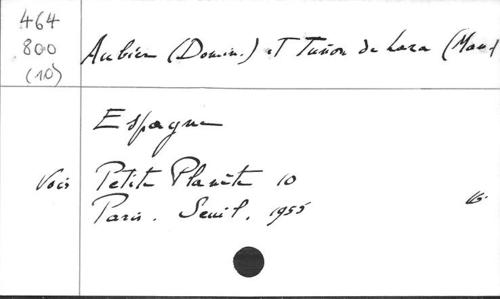 464
800
(10)
Aubier (Domin.) et Tuñon de Lara (Man
Espagne
Voir Petite Planète 10
Paris. Seuil, 1955